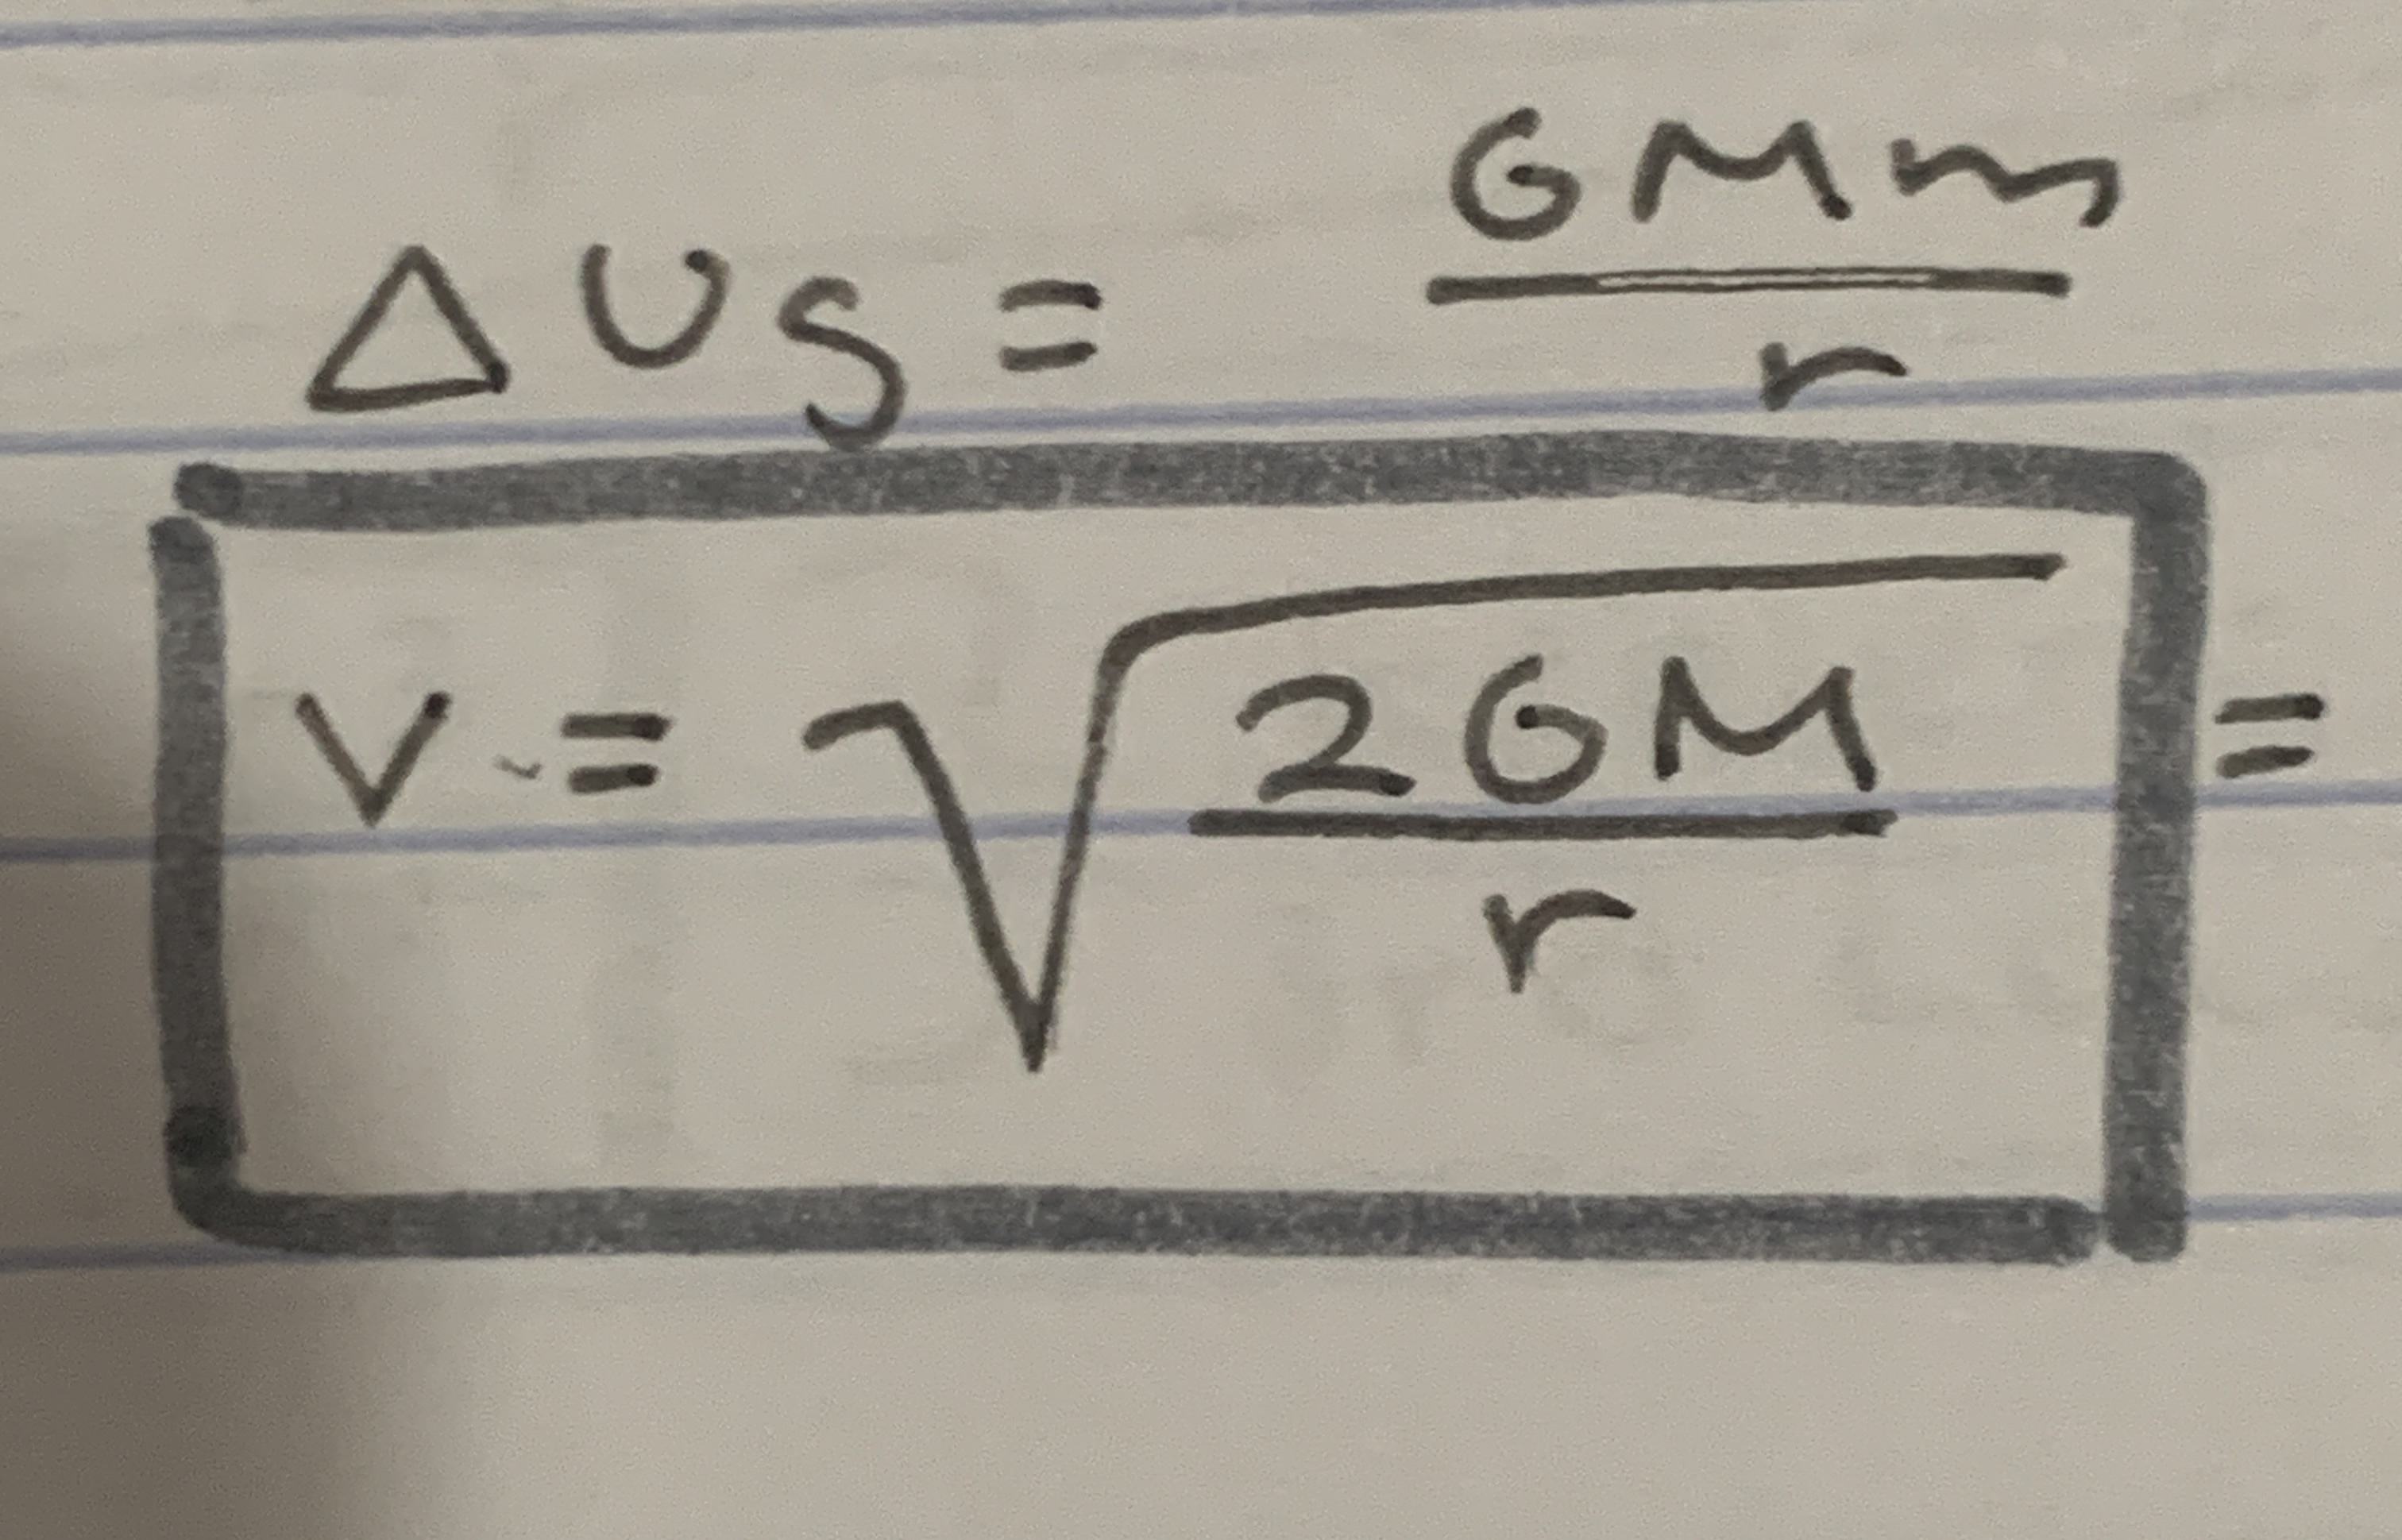 ΔUg = GMm/r
V = √(2GM/r) =